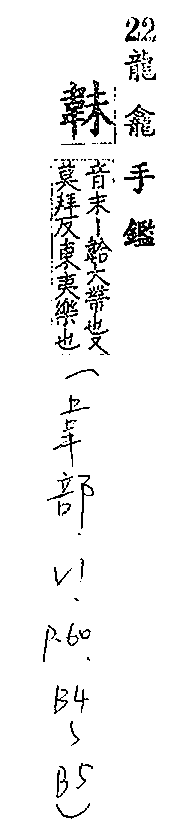 22 龍龕手鑑
韎
音末丨韐大帶也又
莫拜反東夷樂也
(韋部. V1. P.60. B4~B5)